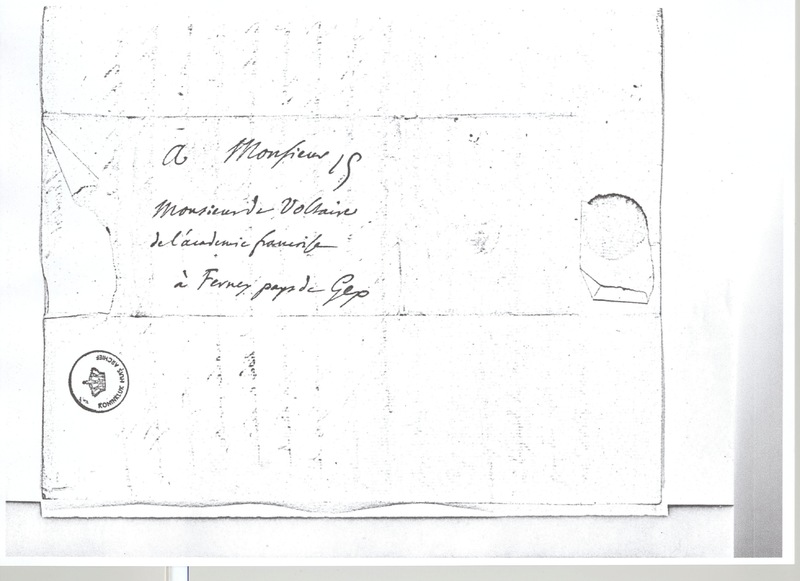 a Monsieur
Monsieur de Voltaire
de l'academie françoise
à Ferney pays de Gex
KONINKLIJK HUIS ARCHIEF